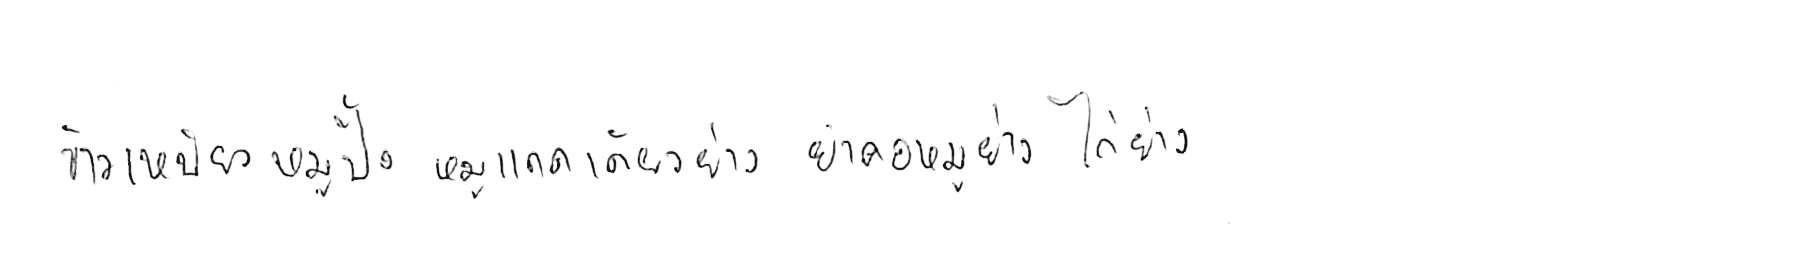 ข้าวเหนียว หมูปิ้ง หมูแดดเดียวย่าง ยำคอหมูย่าง ไก่ย่าง